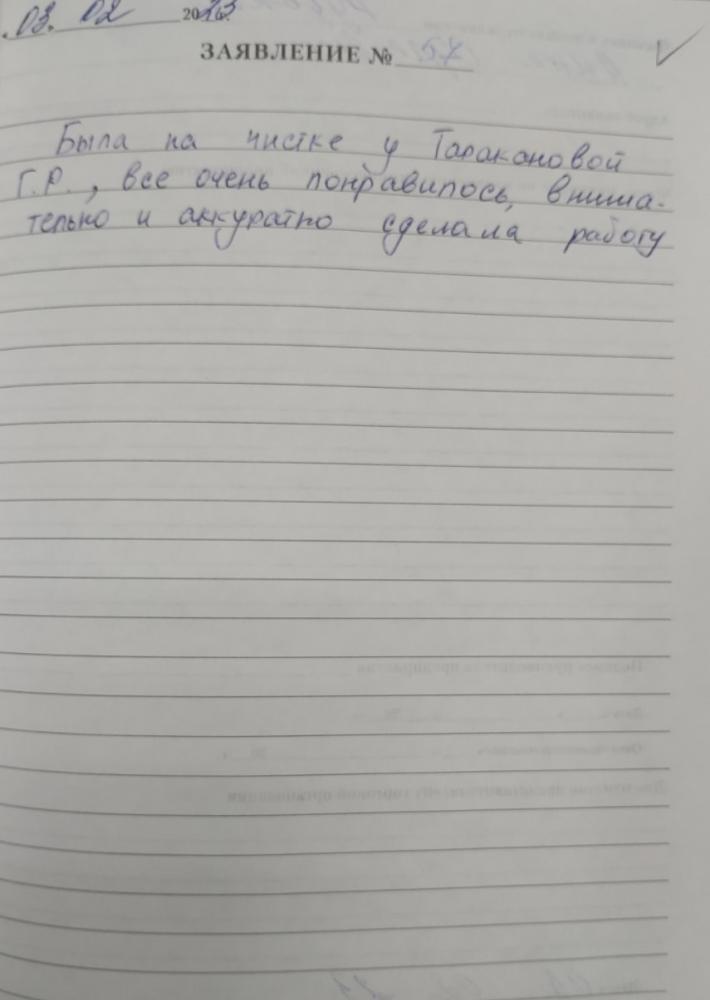 03. 02 2023г.
ЗАЯВЛЕНИЕ № 57
Была на чистке у Таракановой
Г.Р., все очень понравилось, внима-
тельно и аккуратно сделала работу